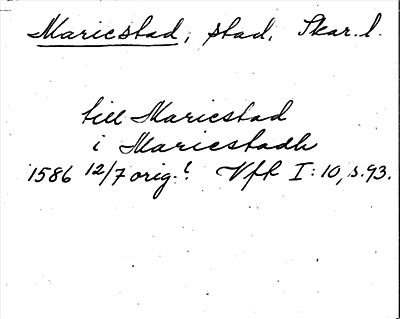 Mariestad, stad, Skar. l.
till Mariestad
i Mariestadh
1586 12/7 orig.! Vfk I:10, s.93.